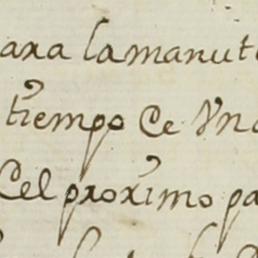 para la manut
tiempo de Un
del proximo pa